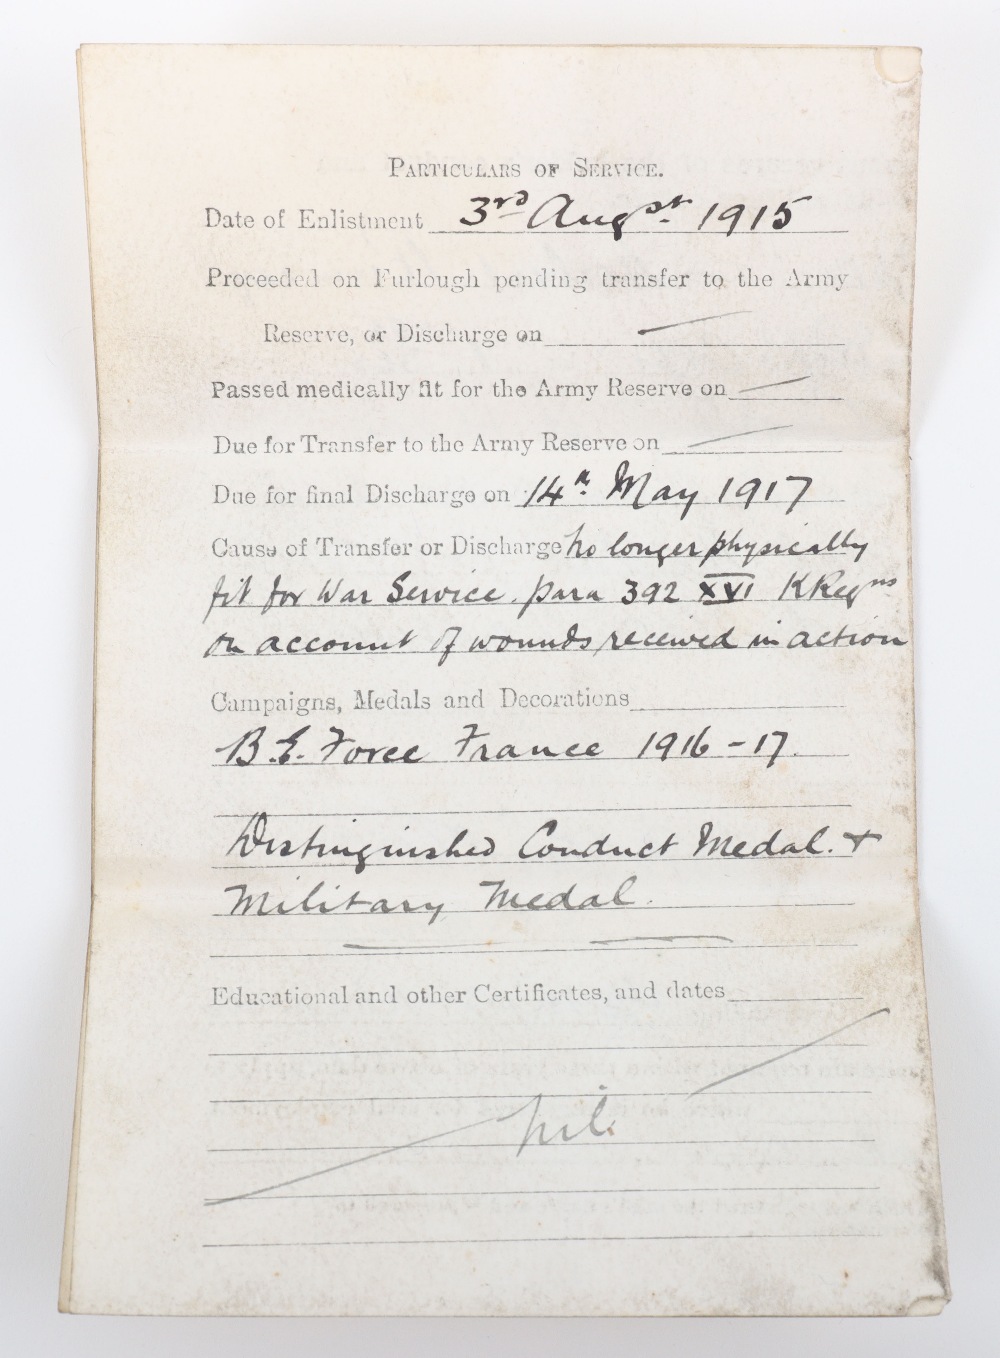 PARTICULARS OF SERVICE.
Date of Enlistment 3rd Augst. 1915
Proceeded on Furlough pending transfer to the Army
Reserve, or Discharge on —
Passed medically fit for the Army Reserve on —
Due for Transfer to the Army Reserve on —
Due for final Discharge on 14th. May 1917
Cause of Transfer or Discharge No longer physically
fit for War Service. para 392 XVI K Regns
on account of wounds received in action
Campaigns, Medals and Decorations
B.E. Force France 1916-17.
Distinguished Conduct Medal. +
Military Medal.
Educational and other Certificates, and dates
nil.